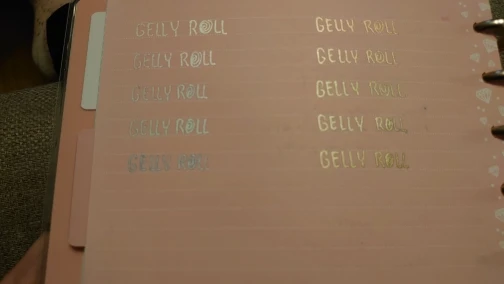 GELLY ROLL GELLY ROLL
GELLY ROLL GELLY ROLL
GELLY ROLL GELLY ROLL
GELLY ROLL GELLY ROLL
GELLY ROLL GELLY ROLL